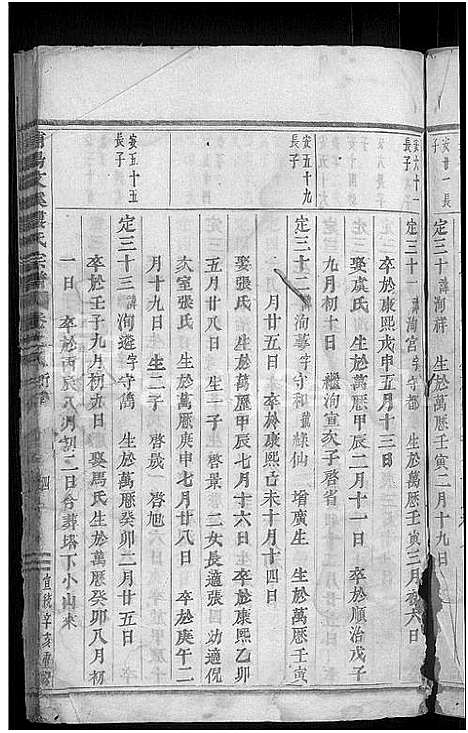 安廿一長子
定三十 諱洵祥 生於萬厯壬寅二月十九日
安六十一長子
定三十一 諱洵宫字守都 生於萬厯壬寅三月初六日
卒於康熙戊申五月十三日
娶虞氏 生於萬厯甲辰二月十一日 卒於順治戊子
九月初十日 繼洵宣次子啓省
安五十九長子
定三十二 諱洵 字守和號綠仙 增廣生 生於萬厯壬寅
月廿五日 卒於康熙己未十月十四日
娶張氏 生於萬厯甲辰七月十六日 卒於康熙乙卯
五月廿八日 生二子 啓景 二女長適張 幼適倪
次室張氏 生於萬厯庚申七月廿八日 卒於庚午二
月十九日 生二子 啓晟 啓旭
安五十五長子
定三十三 諱洵遴字守簡 生於萬厯癸卯二月廿五日
卒於壬子九月初九日 娶馬氏 生於萬厯癸卯八月初
一日 卒於丙辰八月初二日合葬塔下小山來
氏宗譜 卷 行 宣統辛亥重修